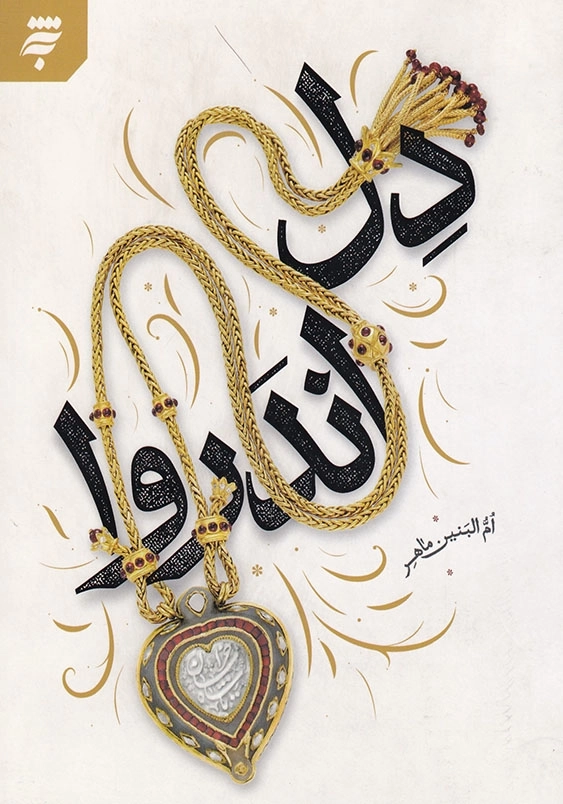 دِل
اندَروا
اُمُّ البَنین ماهِر